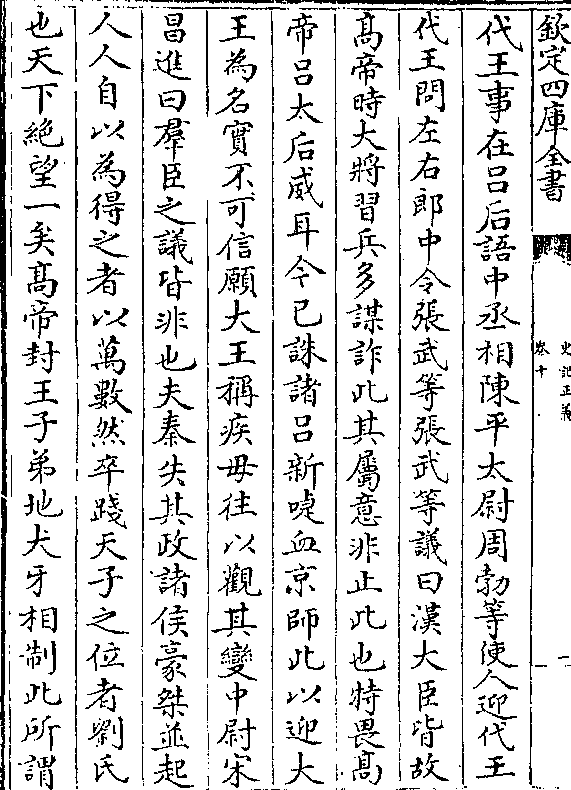 欽定四庫全書
史記正義
卷十
一
代王事在吕后語中丞相陳平太尉周勃等使人迎代王
代王問左右郎中令張武等張武等議曰漢大臣皆故
髙帝時大將習兵多謀詐此其屬意非止此也特畏髙
帝吕太后威耳今已誅諸吕新啑血京師此以迎大
王為名實不可信願大王稱疾毋往以觀其變中尉宋
昌進曰羣臣之議皆非也夫秦失其政諸侯豪桀並起
人人自以為得之者以萬數然卒踐天子之位者劉氏
也天下絶望一矣髙帝封王子弟地犬牙相制此所謂